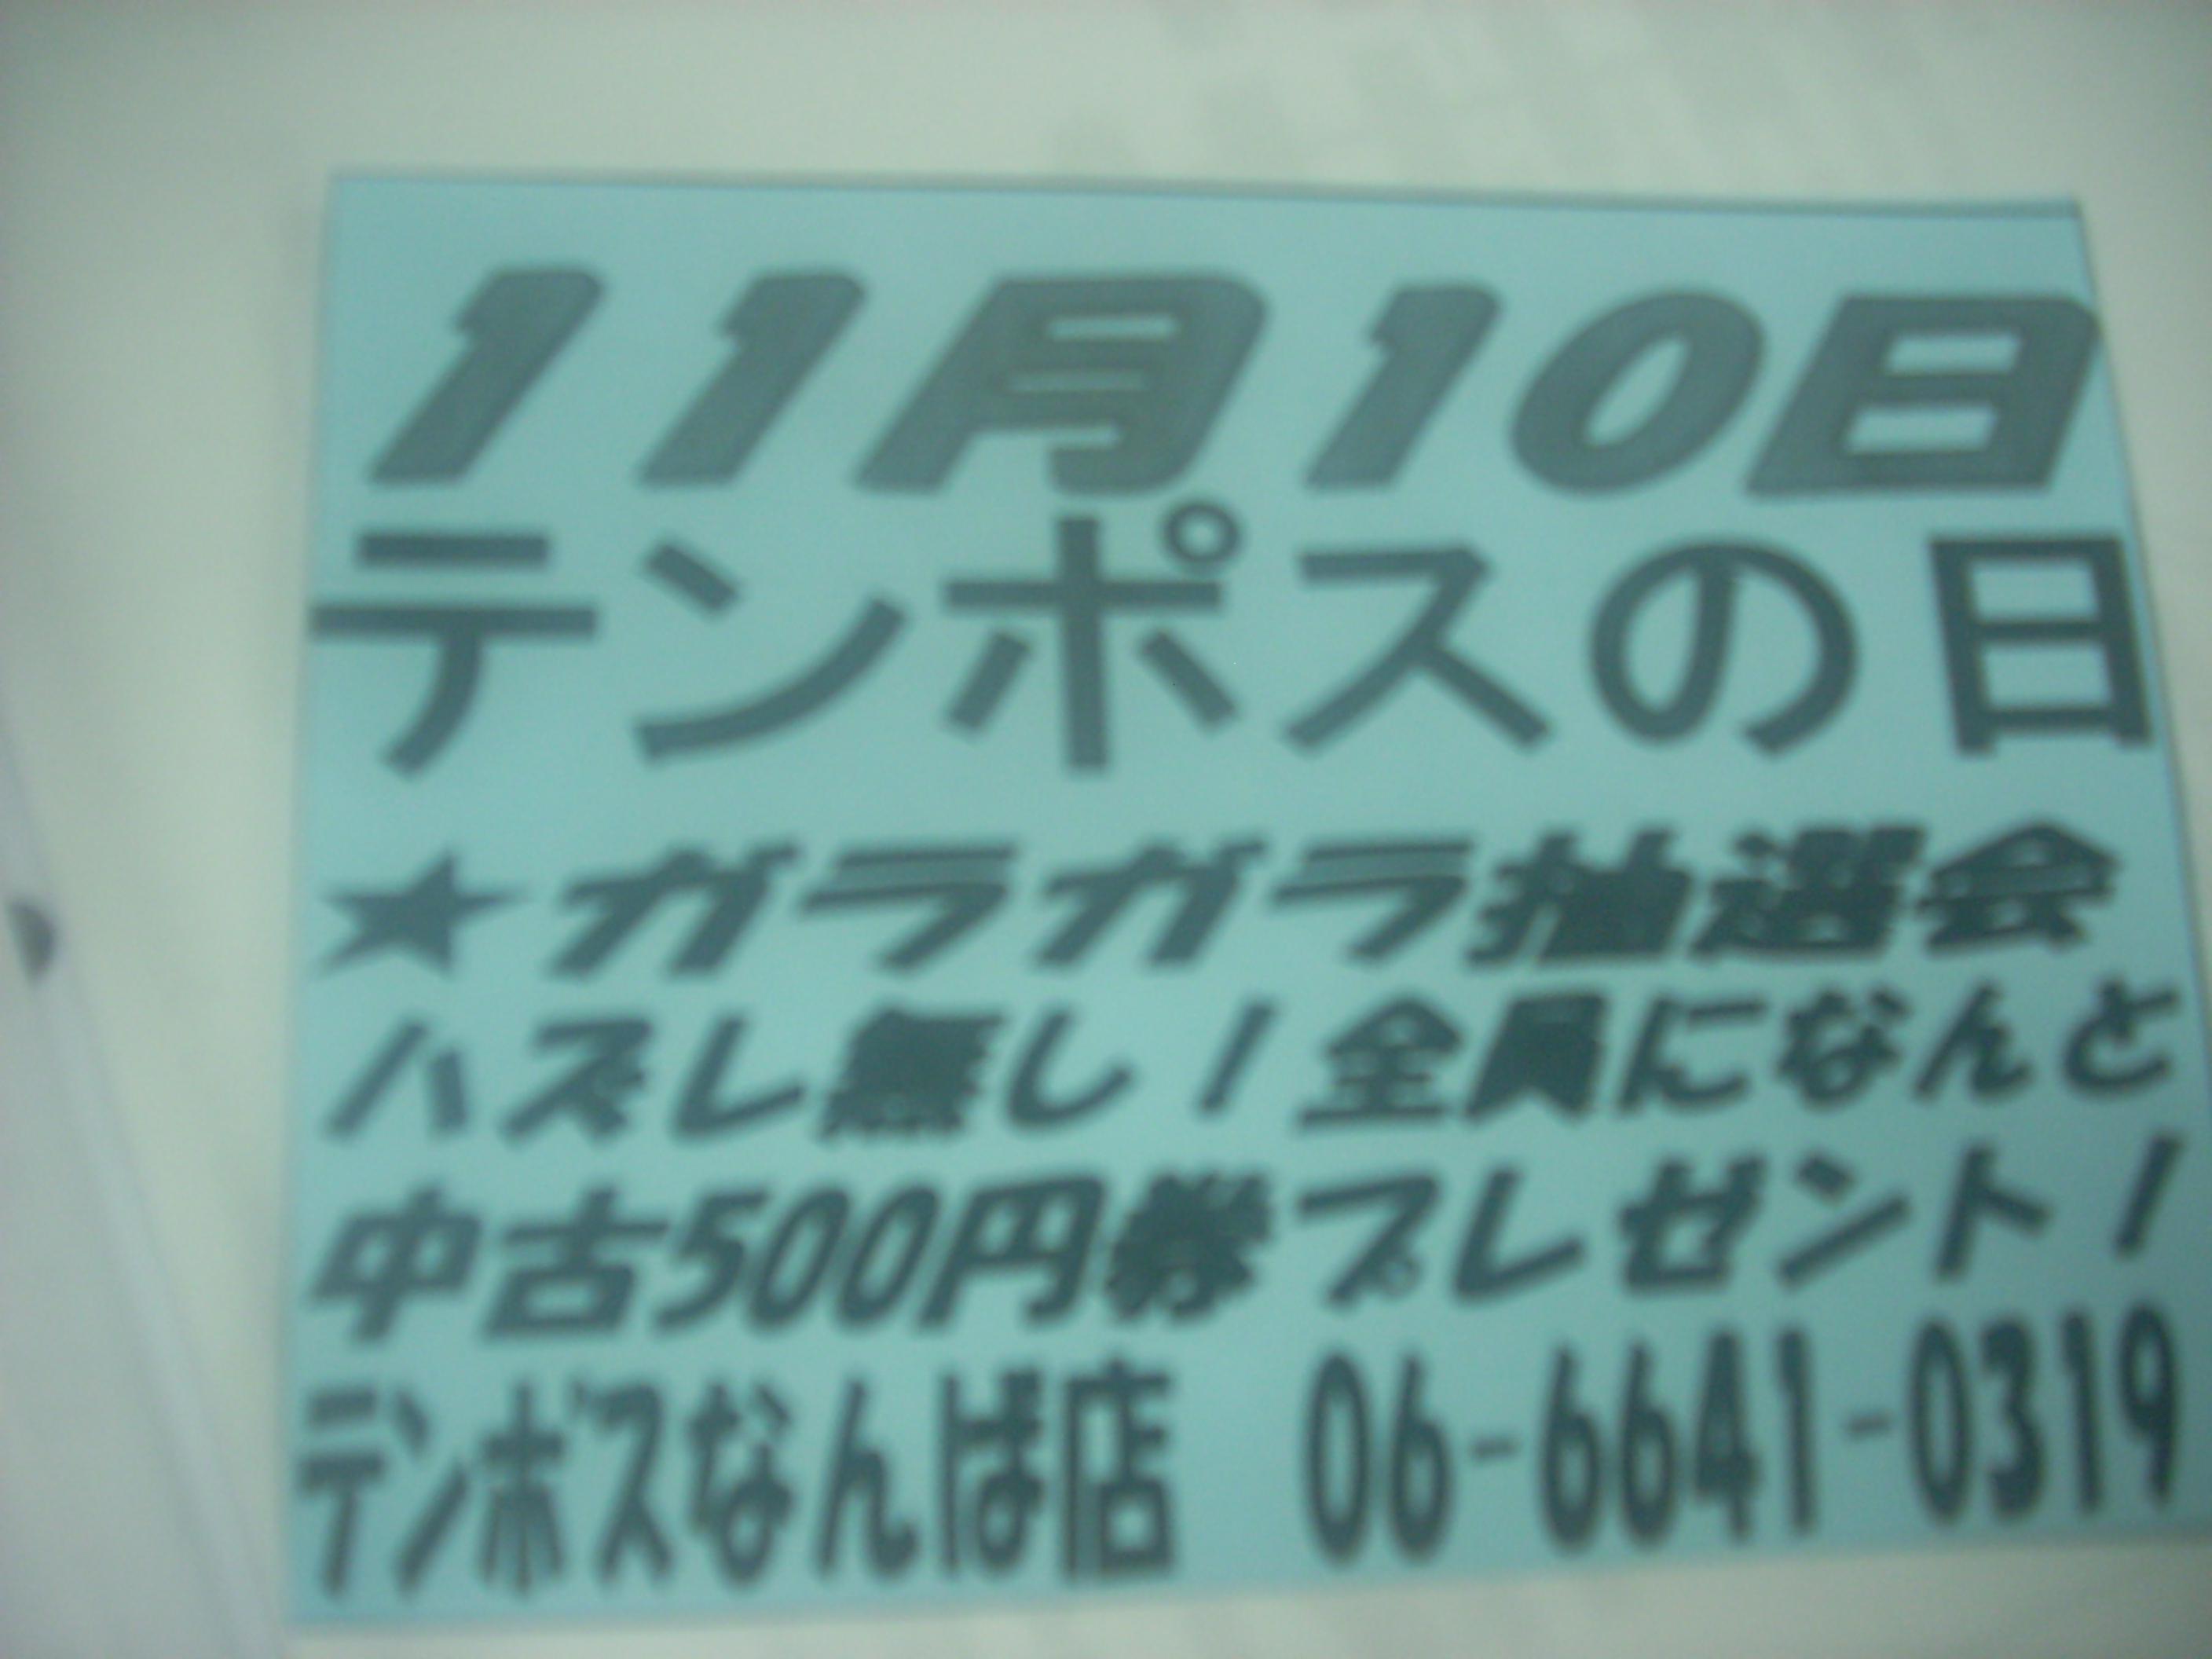 11月10日
テンポスの日
★ガラガラ抽選会
ハズレ無し!全員になんと
中古500円券プレゼント!
テンポスなんば店 06-6641-0319